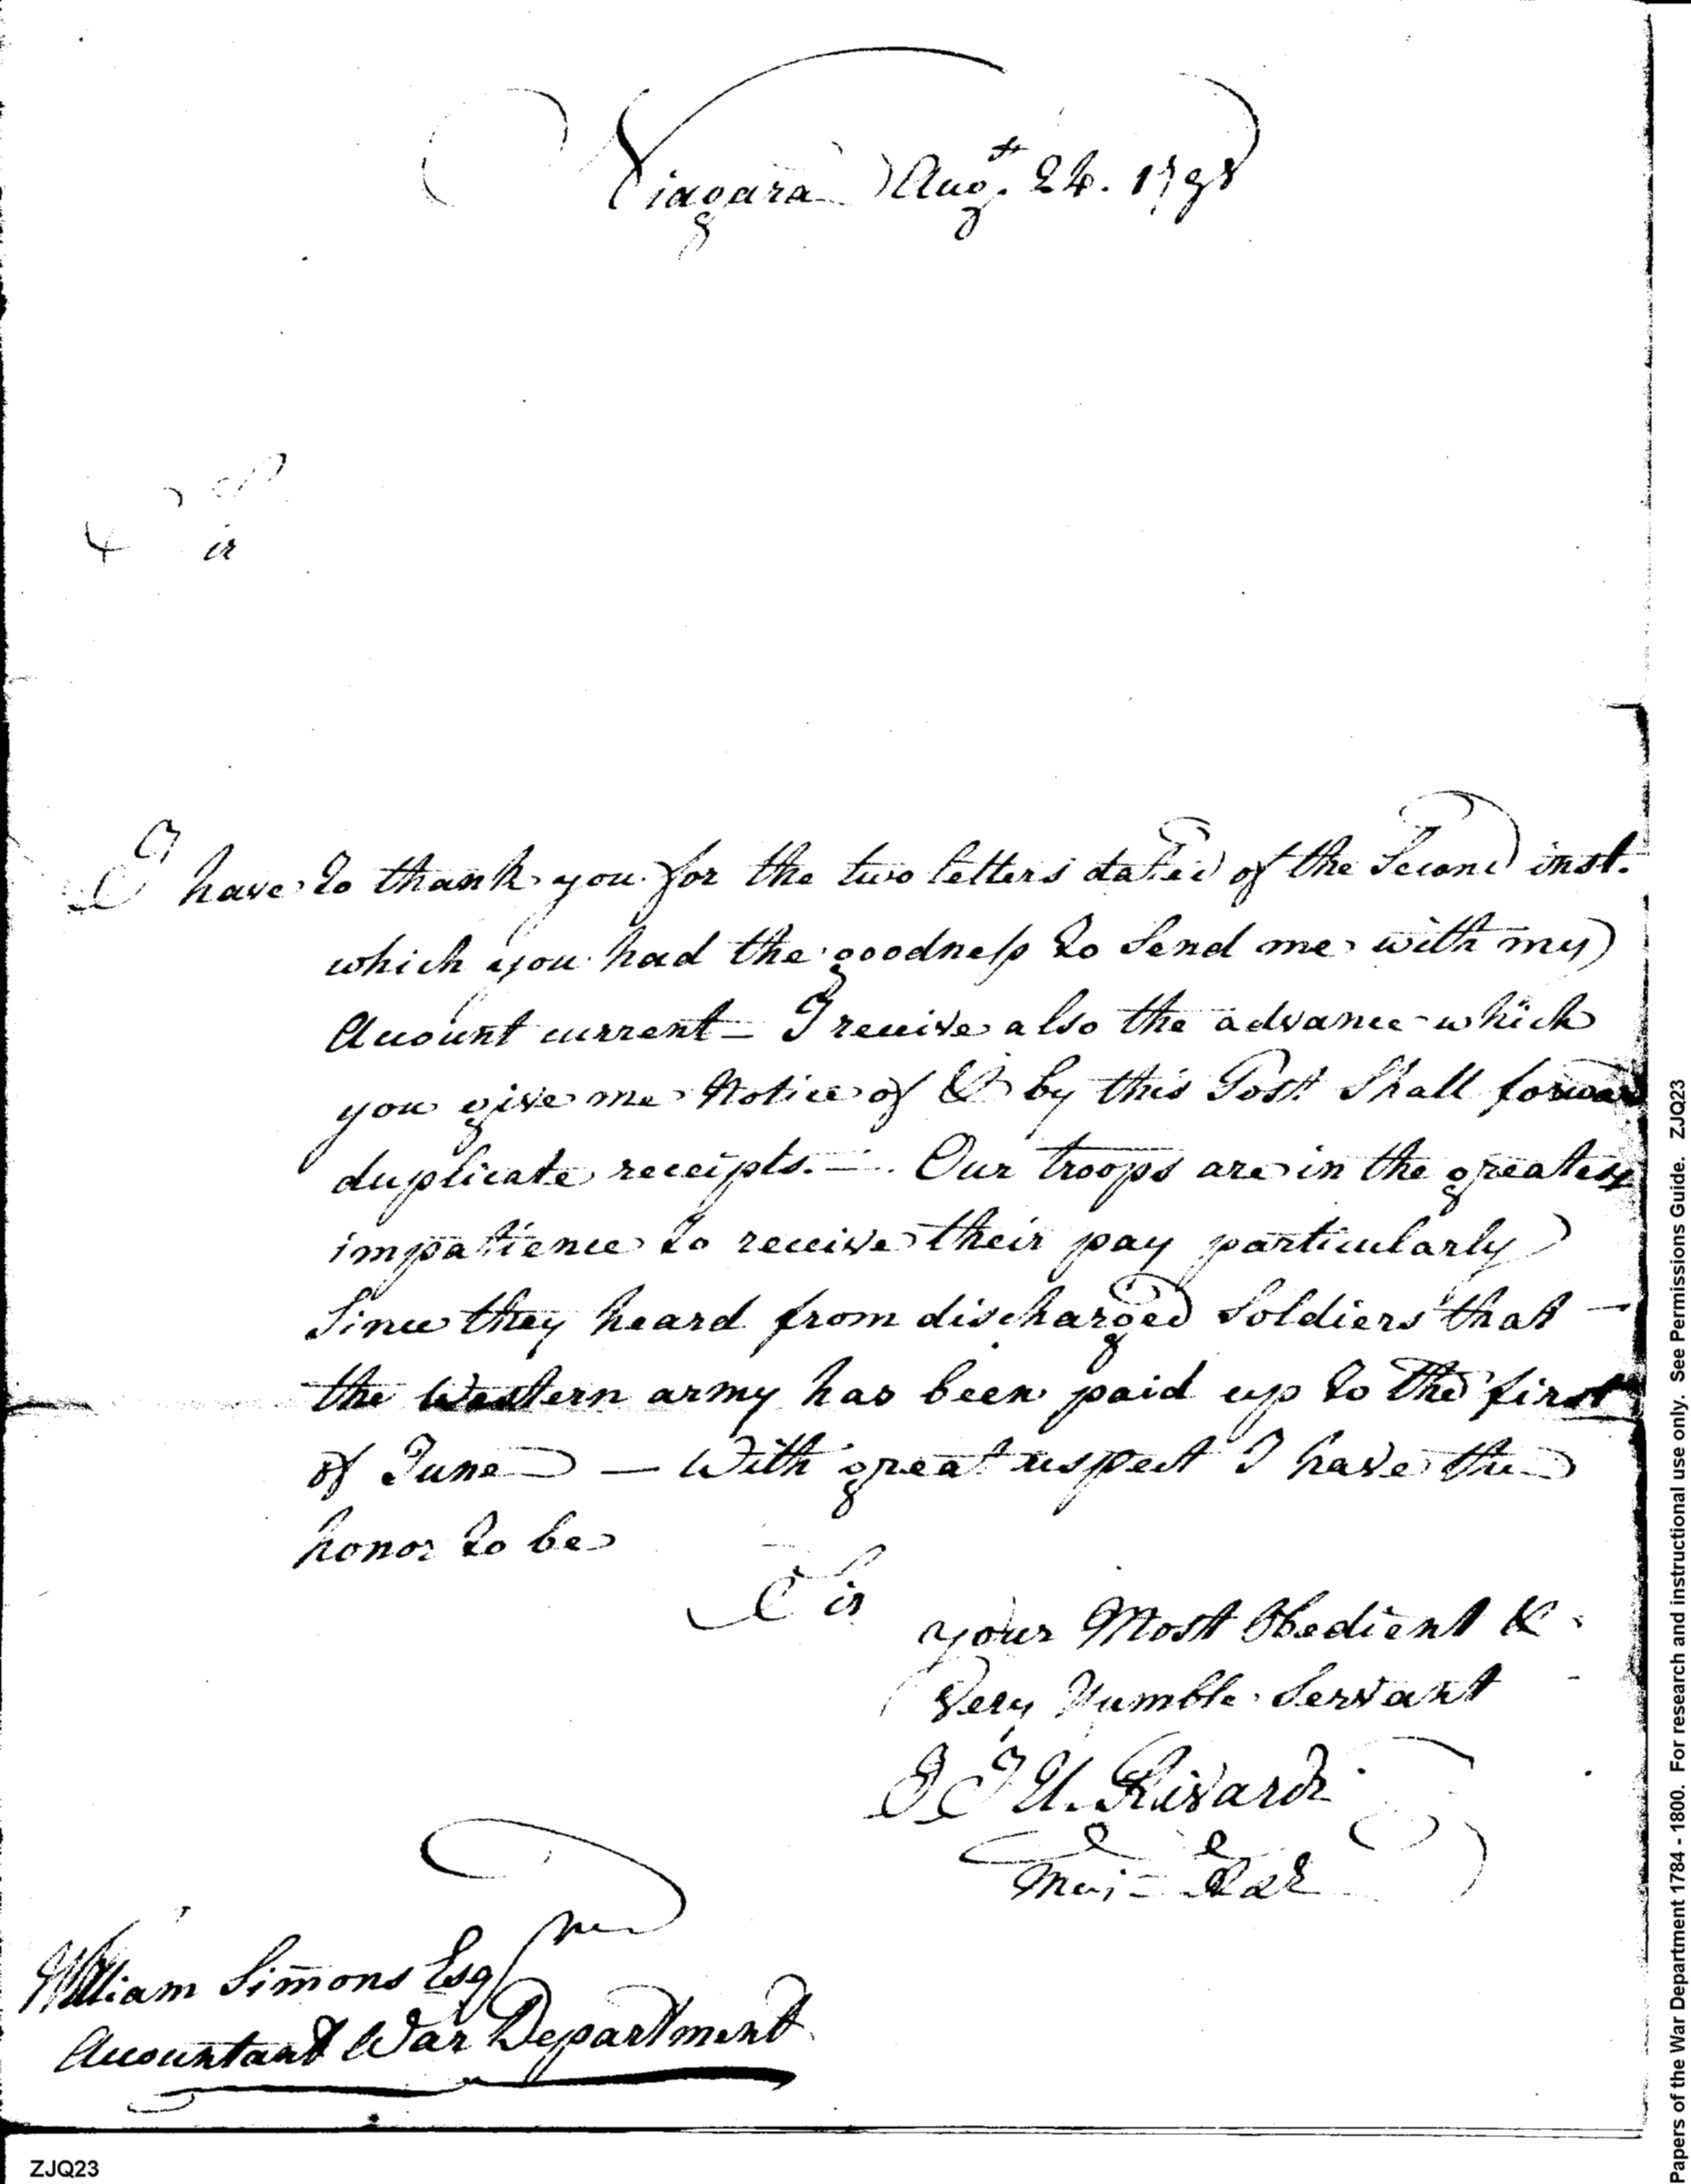 Niagara Augt. 24. 1798
Sir
I have to thank you for the two letters dated of the Second inst.
which you had the goodness to Send me with my
Account current _ I receive also the advance which
you give me Notice of & by this Post Shall forward
duplicate receipts. — . Our troops are in the greatest
impatience to receive their pay particularly
Since they heard from discharged Soldiers that —
the Western army has been paid up to the first
of June — With great respect I have the
honor to be
Sir
your Most Obedient &
Very Humble Servant
J J U. Rivardi
Maj
William Simons Esqr
Accountant War Department
ZJQ23
Papers of the War Department 1784 - 1800. For research and instructional use only. See Permissions Guide. ZJQ23